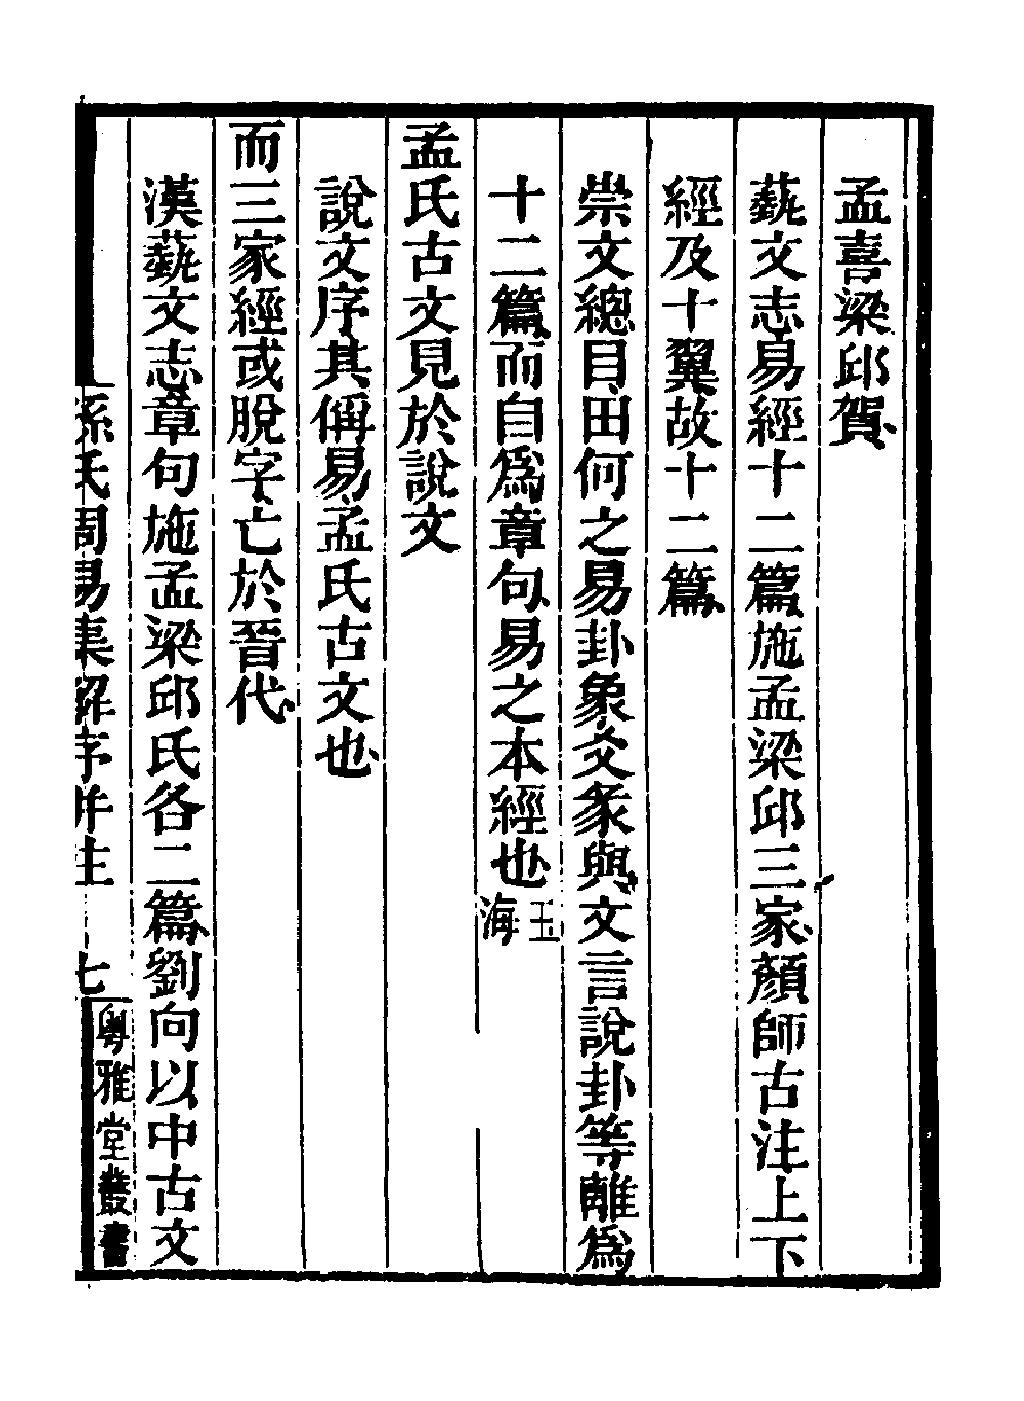 孟喜梁邱賀
藝文志易經十二篇施孟梁邱三家顏師古注上下
經及十翼故十二篇
崇文總目田何之易卦象爻彖與文言說卦等離為
十二篇而自為章句易之本經也玉海
孟氏古文見於說文
說文序其偁易孟氏古文也
而三家經或脫字亡於晉代
漢藝文志章句施孟梁邱氏各二篇劉向以中古文
孫氏周易集解序併注　七　粵雅堂叢書